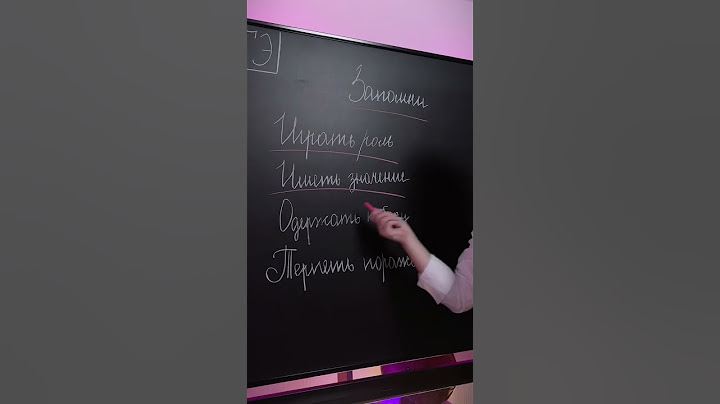 ГЭ
Запомни
Играть роль
Иметь значение
Одержать
Терпеть пораж